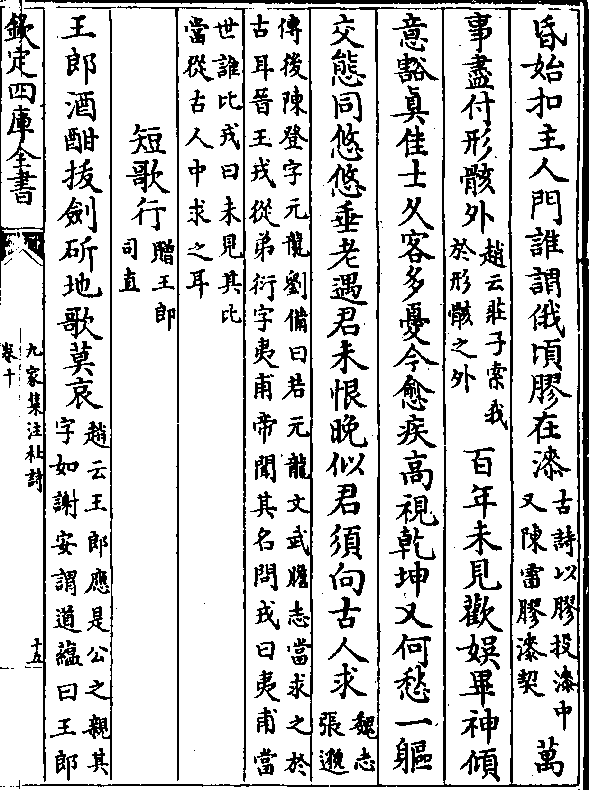 昏始扣主人門誰謂俄頃膠在漆古詩以膠投漆中又陳雷膠漆契萬
事盡付形骸外趙云莊子索我於形骸之外百年未見歡娛畢神傾
意豁真佳士久客多憂今愈疾高視乾坤又何愁一軀
交態同悠悠垂老遇君未恨晚似君須向古人求魏志張邈
傳後陳登字元龍劉備曰若元龍文武膽志當求之於
古耳晉王戎從弟衍字夷甫帝聞其名問戎曰夷甫當
世誰比戎曰未見其比
當從古人中求之耳
短歌行贈王郎司直
王郎酒酣拔劍斫地歌莫哀趙云王郎應是公之親其字如謝安謂道蘊曰王郎
欽定四庫全書
九家集注杜詩
卷十
十五